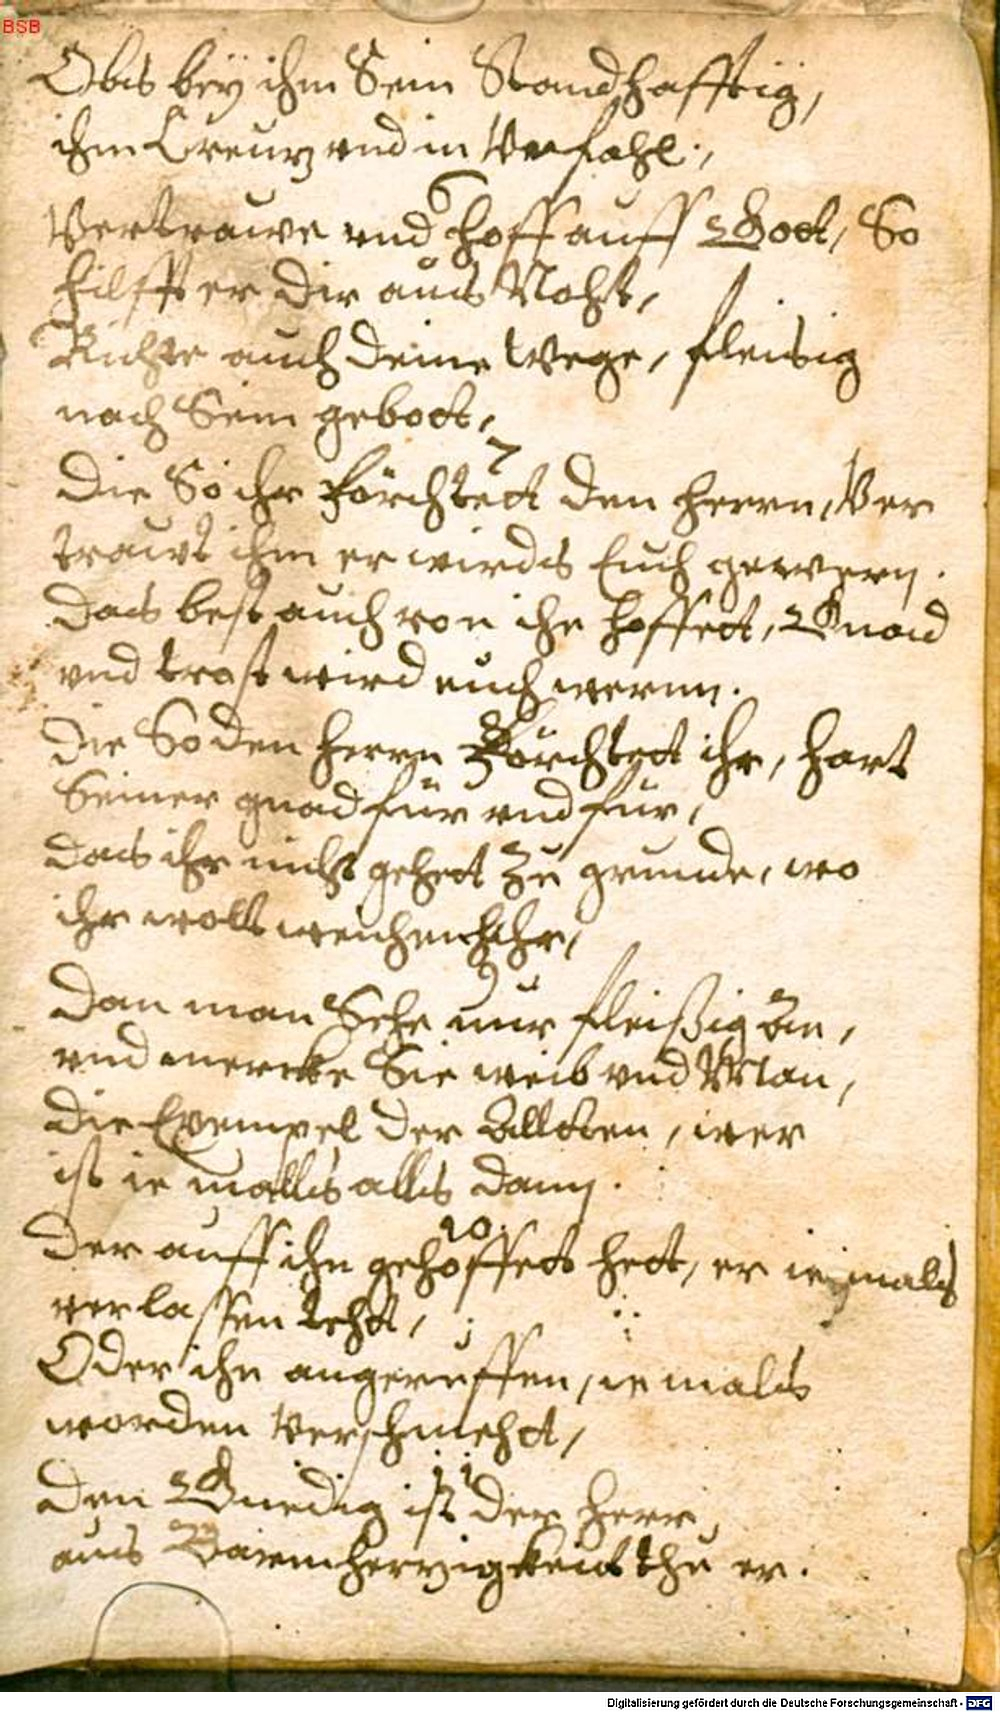 BSB
Obs bey ihm Sein Standhafftig,
ihm Creutz und in Unfahl.,
6
Vertrawe und hoff auff Gott, So
hilfft er dir aus Noht,
Richte auch deine Wege, fleisig
nach Sein gebott,
7
Die So ihr förchtett den herrn, Ver
trawt ihm er wirds Euch gewern.
Das best auch von ihn hoffett, Gnad
und trost wird euch wernn.
8
Die So den herrn Förchtett ihr, hart
Seiner gnad für und für,
das ihr nicht gehett zu grunde, wo
ihr wolt weichen hihr,
9
Dan man Sehe nur fleißig an,
und mercke Sie weib und Man,
die Exempel der Altten, wer
ist ie mahls alls dann.
10.
Der auff ihn gehoffett hett, er ie mals
verlassen teht,
Oder ihn angeruffen, ie mals
worden Verschmeht,
11
Den Gnedig ist der herr,
aus Barmhertzigkeit thu er.
Digitalisierung gefördert durch die Deutsche Forschungsgemeinschaft - DFG